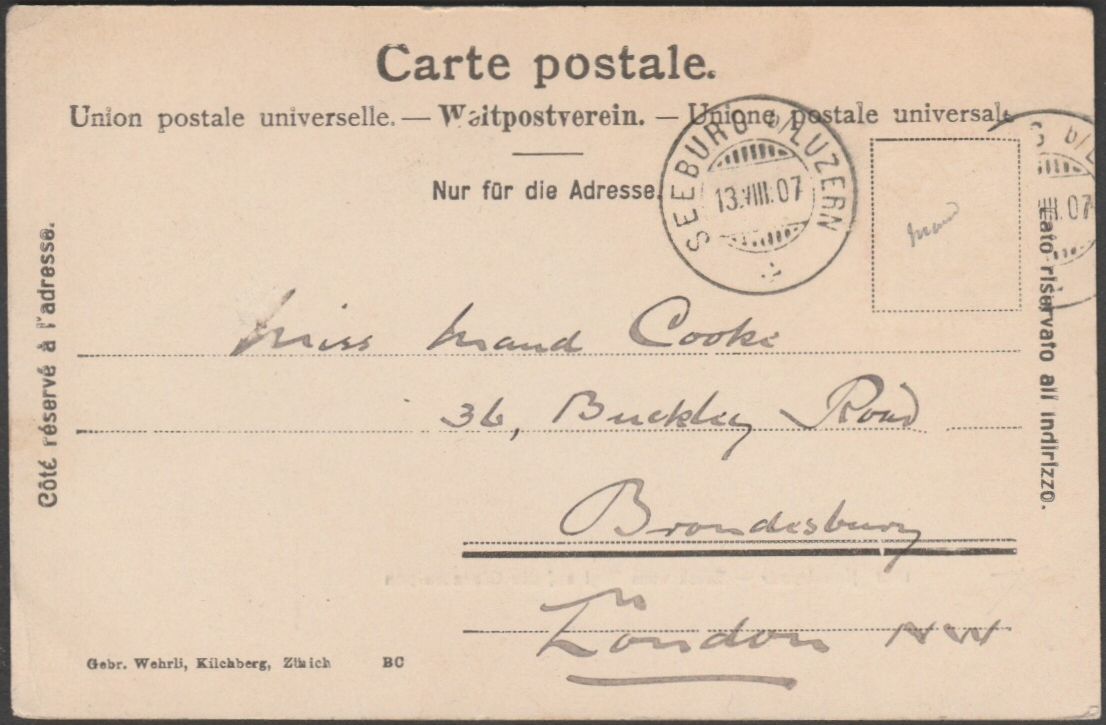 Carte postale.
Union postale universelle. — Weltpostverein. — Unione postale universale
Nur für die Adresse.
SEEBURG b/LUZERN
13.VIII.07
G b/L
VIII.07
Côté réservé à l'adresse.
Lato riservato all indirizzo.
Miss Maud Cooke
36, Buckley Road
Brondesbury
London NW
Gebr. Wehrli, Kilchberg, Zürich BC